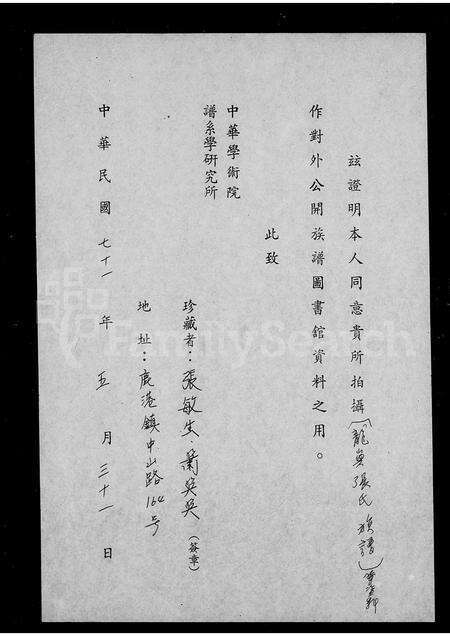 茲證明本人同意貴所拍攝（龍泉張氏族譜）
作對外公開族譜圖書館資料之用。
此致
中華學術院
譜系學研究所
珍藏者：張敏生．蕭吳吳（簽章）
地址：鹿港鎮中山路164号
中華民國七十一年五月三十一日
FamilySearch